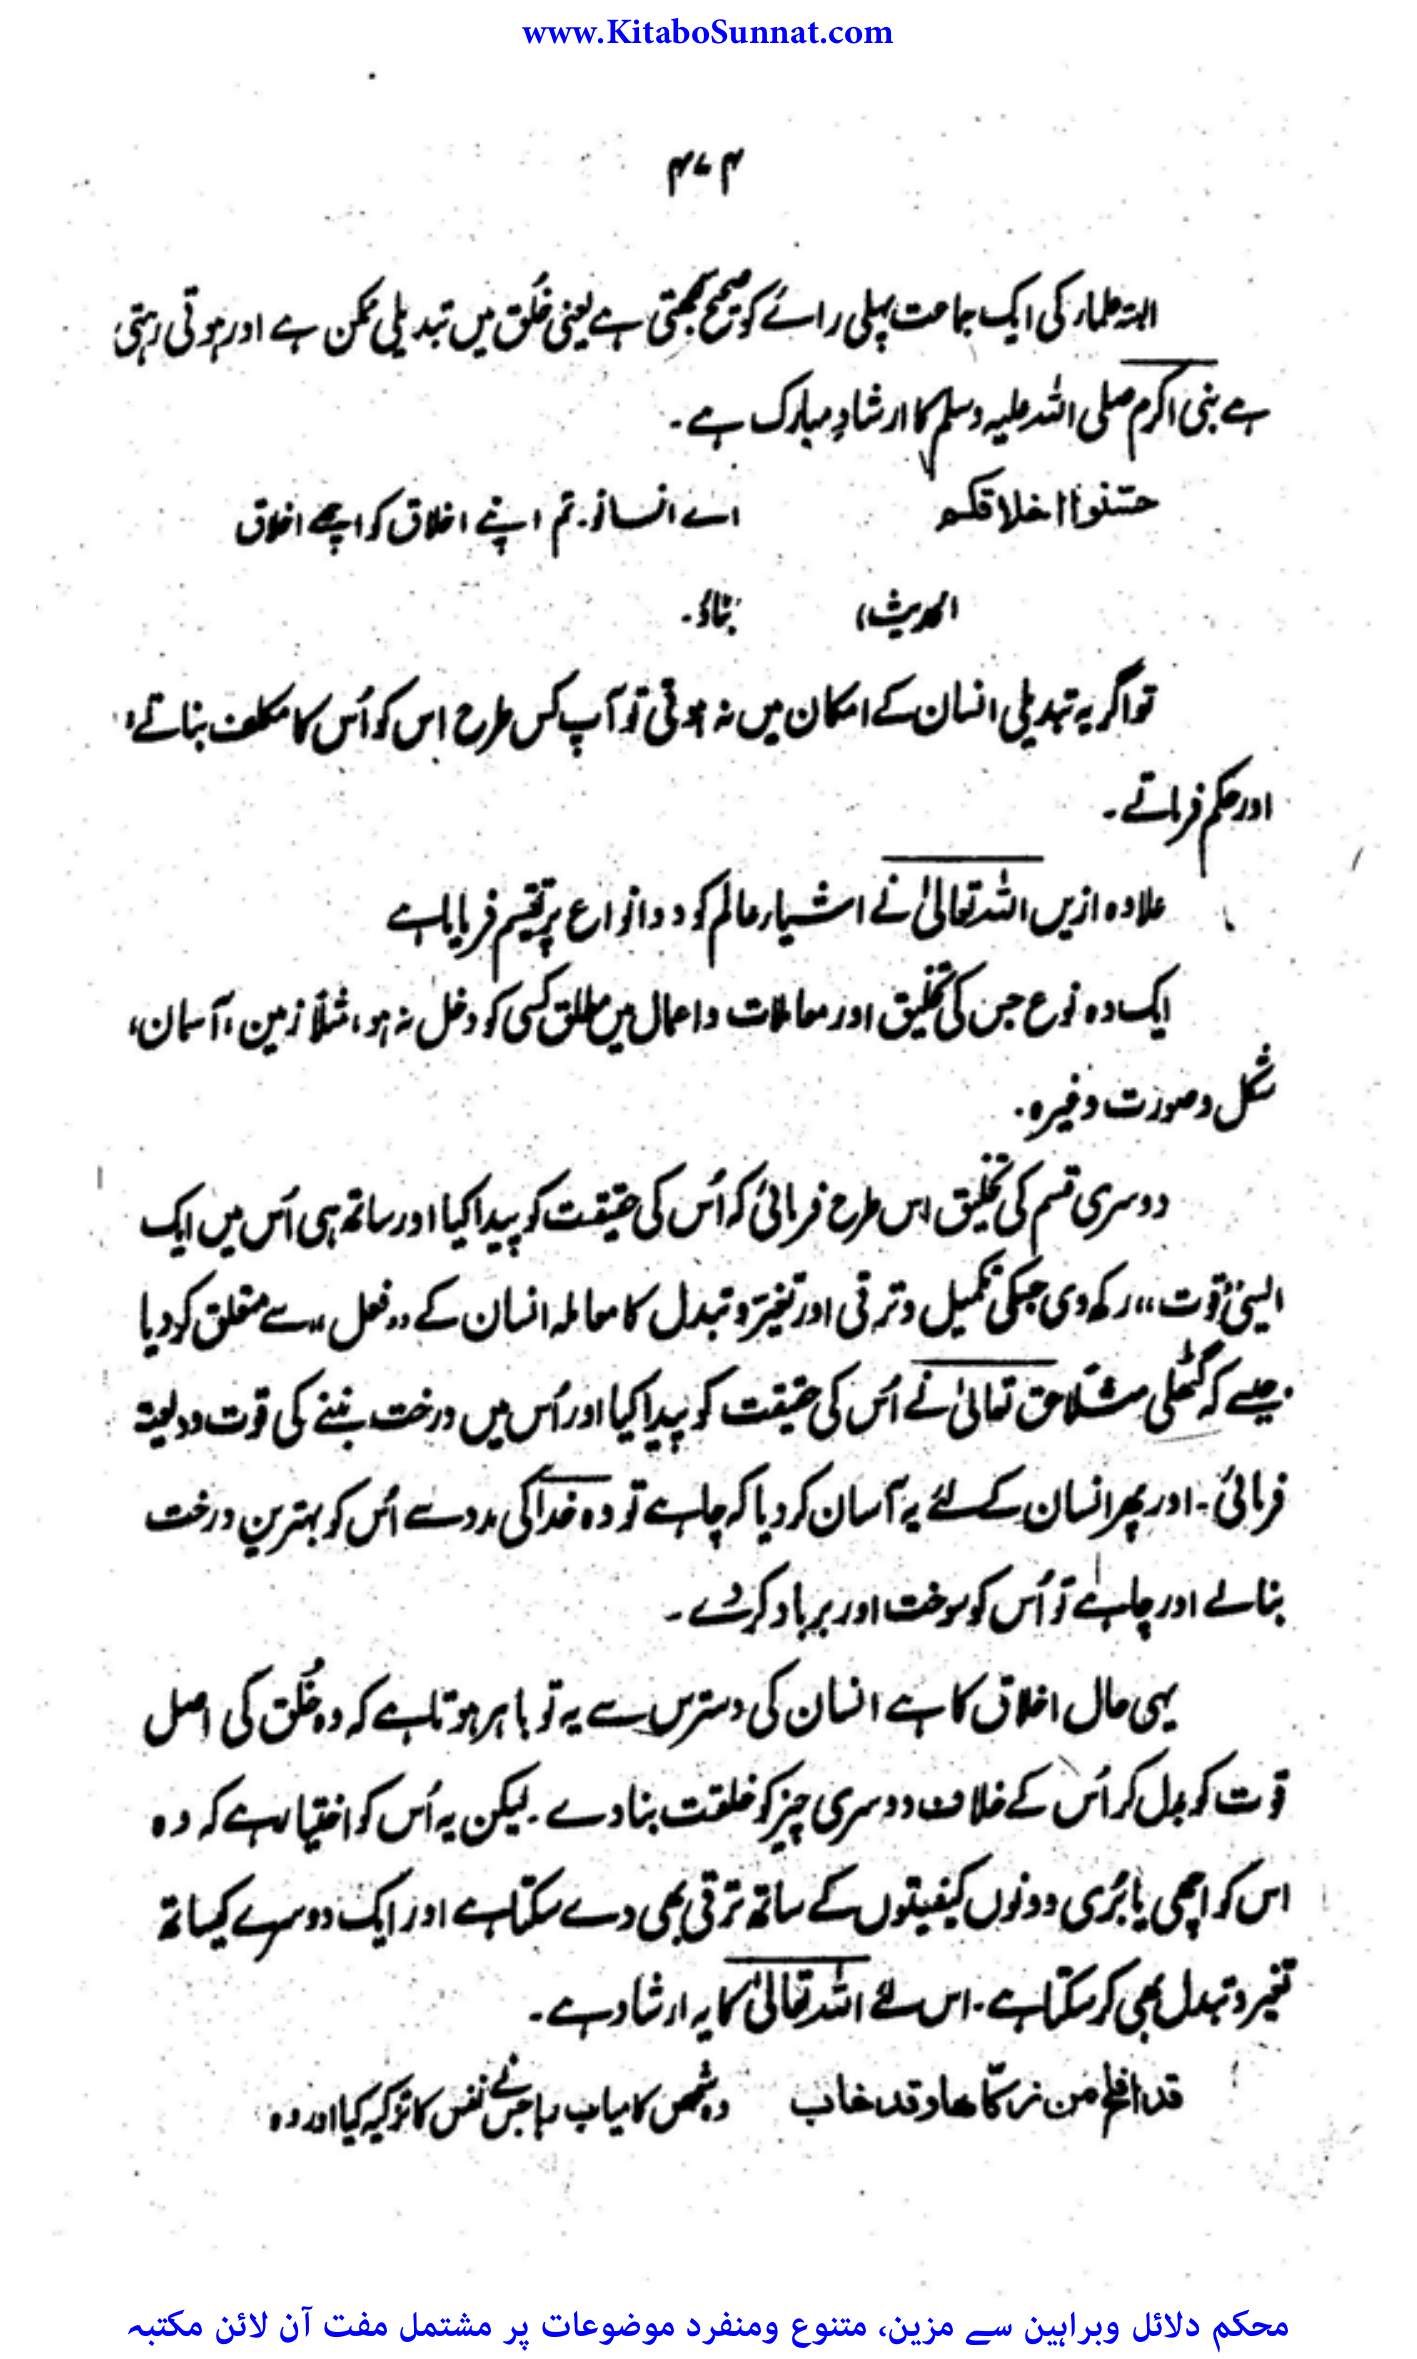 www.KitaboSunnat.com
۴۷۴
البتہ علماء کی ایک جماعت پہلی رائے کو صحیح سمجھتی ہے یعنی خُلق میں تبدیلی ممکن ہے اور ہوتی رہتی
ہے نبی اکرم صلی اللہ علیہ وسلم کا ارشادِ مبارک ہے۔
حسّنوا اخلاقکم اے انسانو۔ تم اپنے اخلاق کو اچھے اخلاق
الحدیث، بناؤ۔
تو اگر یہ تبدیلی انسان کے امکان میں نہ ہوتی تو آپ کس طرح اس کو اُس کا مکلف بناتے؛
اور حکم فرماتے۔
علاوہ ازیں اللہ تعالیٰ نے اشیاء عالم کو دو انواع پر تقسیم فرمایا ہے
ایک وہ نوع جس کی تخلیق اور معاملات و اعمال میں مطلق کسی کو دخل نہ ہو، مثلاً زمین، آسمان،
شکل و صورت وغیرہ۔
دوسری قسم کی تخلیق اس طرح فرمائی کہ اُس کی حقیقت کو پیدا کیا اور ساتھ ہی اُس میں ایک
ایسی قوت،، رکھ دی جسکی تکمیل و ترقی اور تغیّر و تبدل کا معاملہ انسان کے ,,فعل،، سے متعلق کر دیا
جیسے کہ گٹھلی مثلاً حق تعالیٰ نے اُس کی حقیقت کو پیدا کیا اور اُس میں درخت بننے کی قوت ودیعۃ
فرمائی۔ اور پھر انسان کے لئے یہ آسان کر دیا کہ چاہے تو وہ خدا کی مدد سے اُس کو بہترین درخت
بنالے اور چاہے تو اُس کو سوخت اور برباد کردے۔
یہی حال اخلاق کا ہے انسان کی دسترس سے یہ تو باہر ہوتا ہے کہ وہ خُلق کی اصل
قوت کو بدل کر اُس کے خلاف دوسری چیز کو خلقت بنا دے۔ لیکن یہ اُس کو اختیار ہے کہ وہ
اس کو اچھی یا بُری دونوں کیفیتوں کے ساتھ ترقی بھی دے سکتا ہے اور ایک دوسرے کیساتھ
تغیر و تبدل بھی کر سکتا ہے۔ اس لئے اللہ تعالیٰ کا یہ ارشاد ہے۔
قد افلح من زکّاھا وقد خاب وہ شخص کامیاب رہا جس نے نفس کا تزکیہ کیا اور وہ
محکم دلائل وبراہین سے مزین، متنوع ومنفرد موضوعات پر مشتمل مفت آن لائن مکتبہ